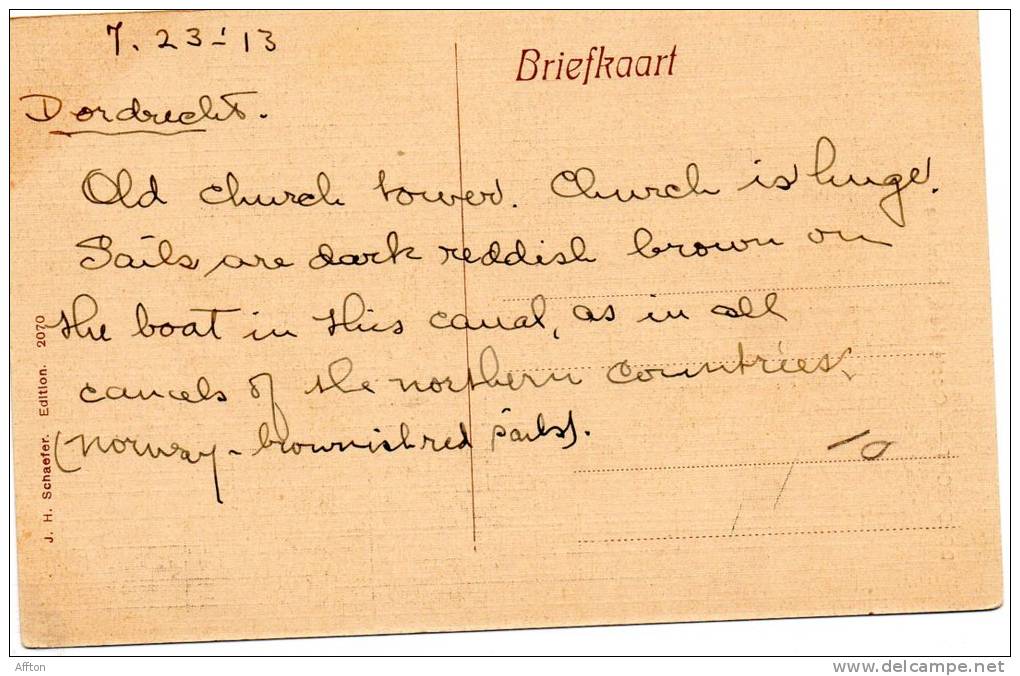 7. 23 - 13
Briefkaart
Dordrecht.
Old church tower. Church is huge.
Sails are dark reddish brown on
the boat in this canal, as in all
canals of the northern countries.
(Norway - brownish red sails).
10
J. H. Schaefer. Edition. 2070
Affton
delcampe.net